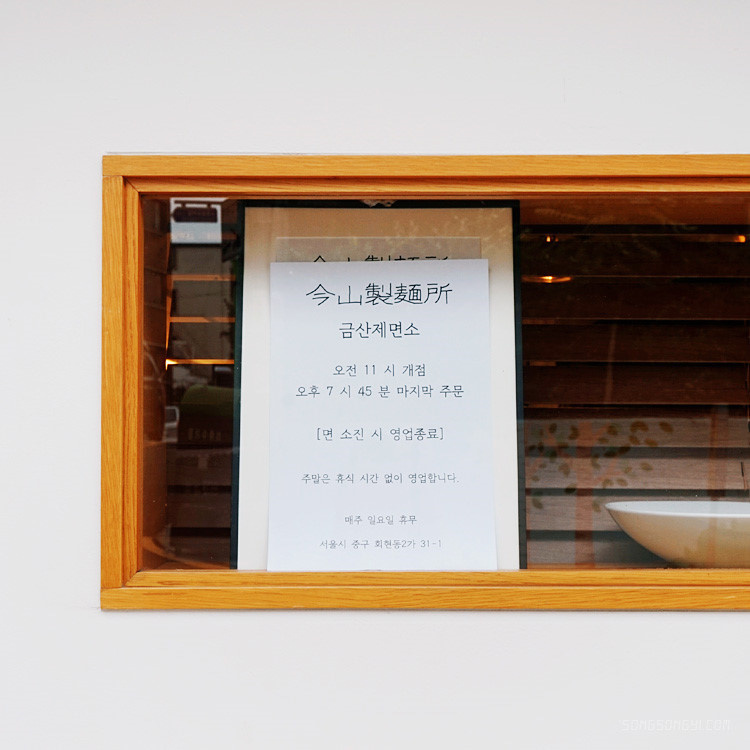 今山製麵所
今山製麵所
금산제면소
오전 11 시 개점
오후 7 시 45 분 마지막 주문
[면 소진 시 영업종료]
주말은 휴식 시간 없이 영업합니다.
매주 일요일 휴무
서울시 중구 회현동2가 31-1
SONGSONGYI.COM